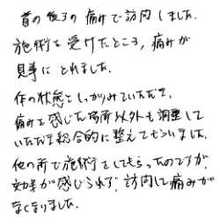 首の後ろの痛みで訪問しました。
施術を受けたところ、痛みが
見事にとれました。
体の状態をしっかりみていただき、
痛みを感じた場所以外も調整して
いただき総合的に整えてもらいました。
他の所で施術をしてもらったのですが、
効果が感じられず、訪問して痛みが
なくなりました。